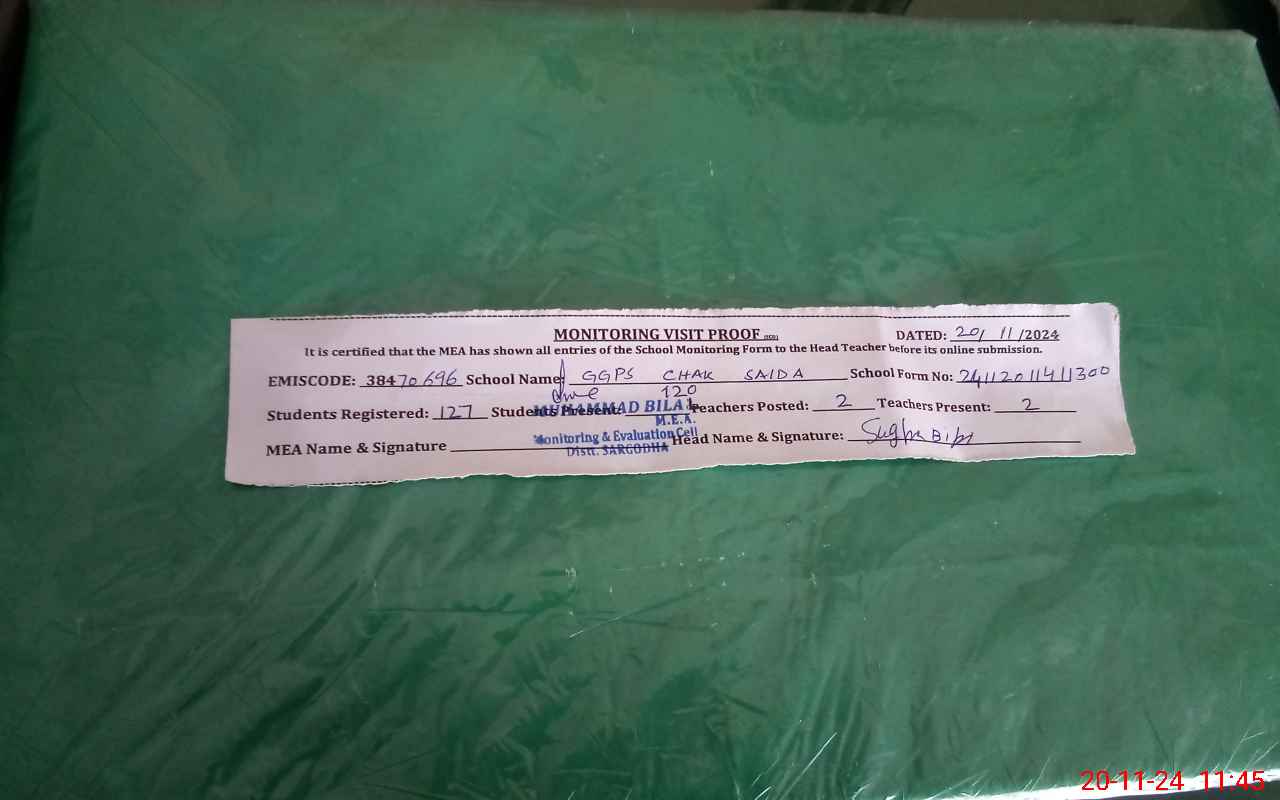 MONITORING VISIT PROOF DATED: 20/ 11 /2024
It is certified that the MEA has shown all entries of the School Monitoring Form to the Head Teacher before its online submission.
EMISCODE: 38470696 School Name: GGPS CHAK SAIDA School Form No: 2411201141300
Students Registered: 127 Students Present: 120 Teachers Posted: 2 Teachers Present: 2
MUHAMMAD BILAL
M.E.A.
Monitoring & Evaluation Cell
Distt. SARGODHA
MEA Name & Signature Head Name & Signature: Sughra Bibi
20-11-24 11:45